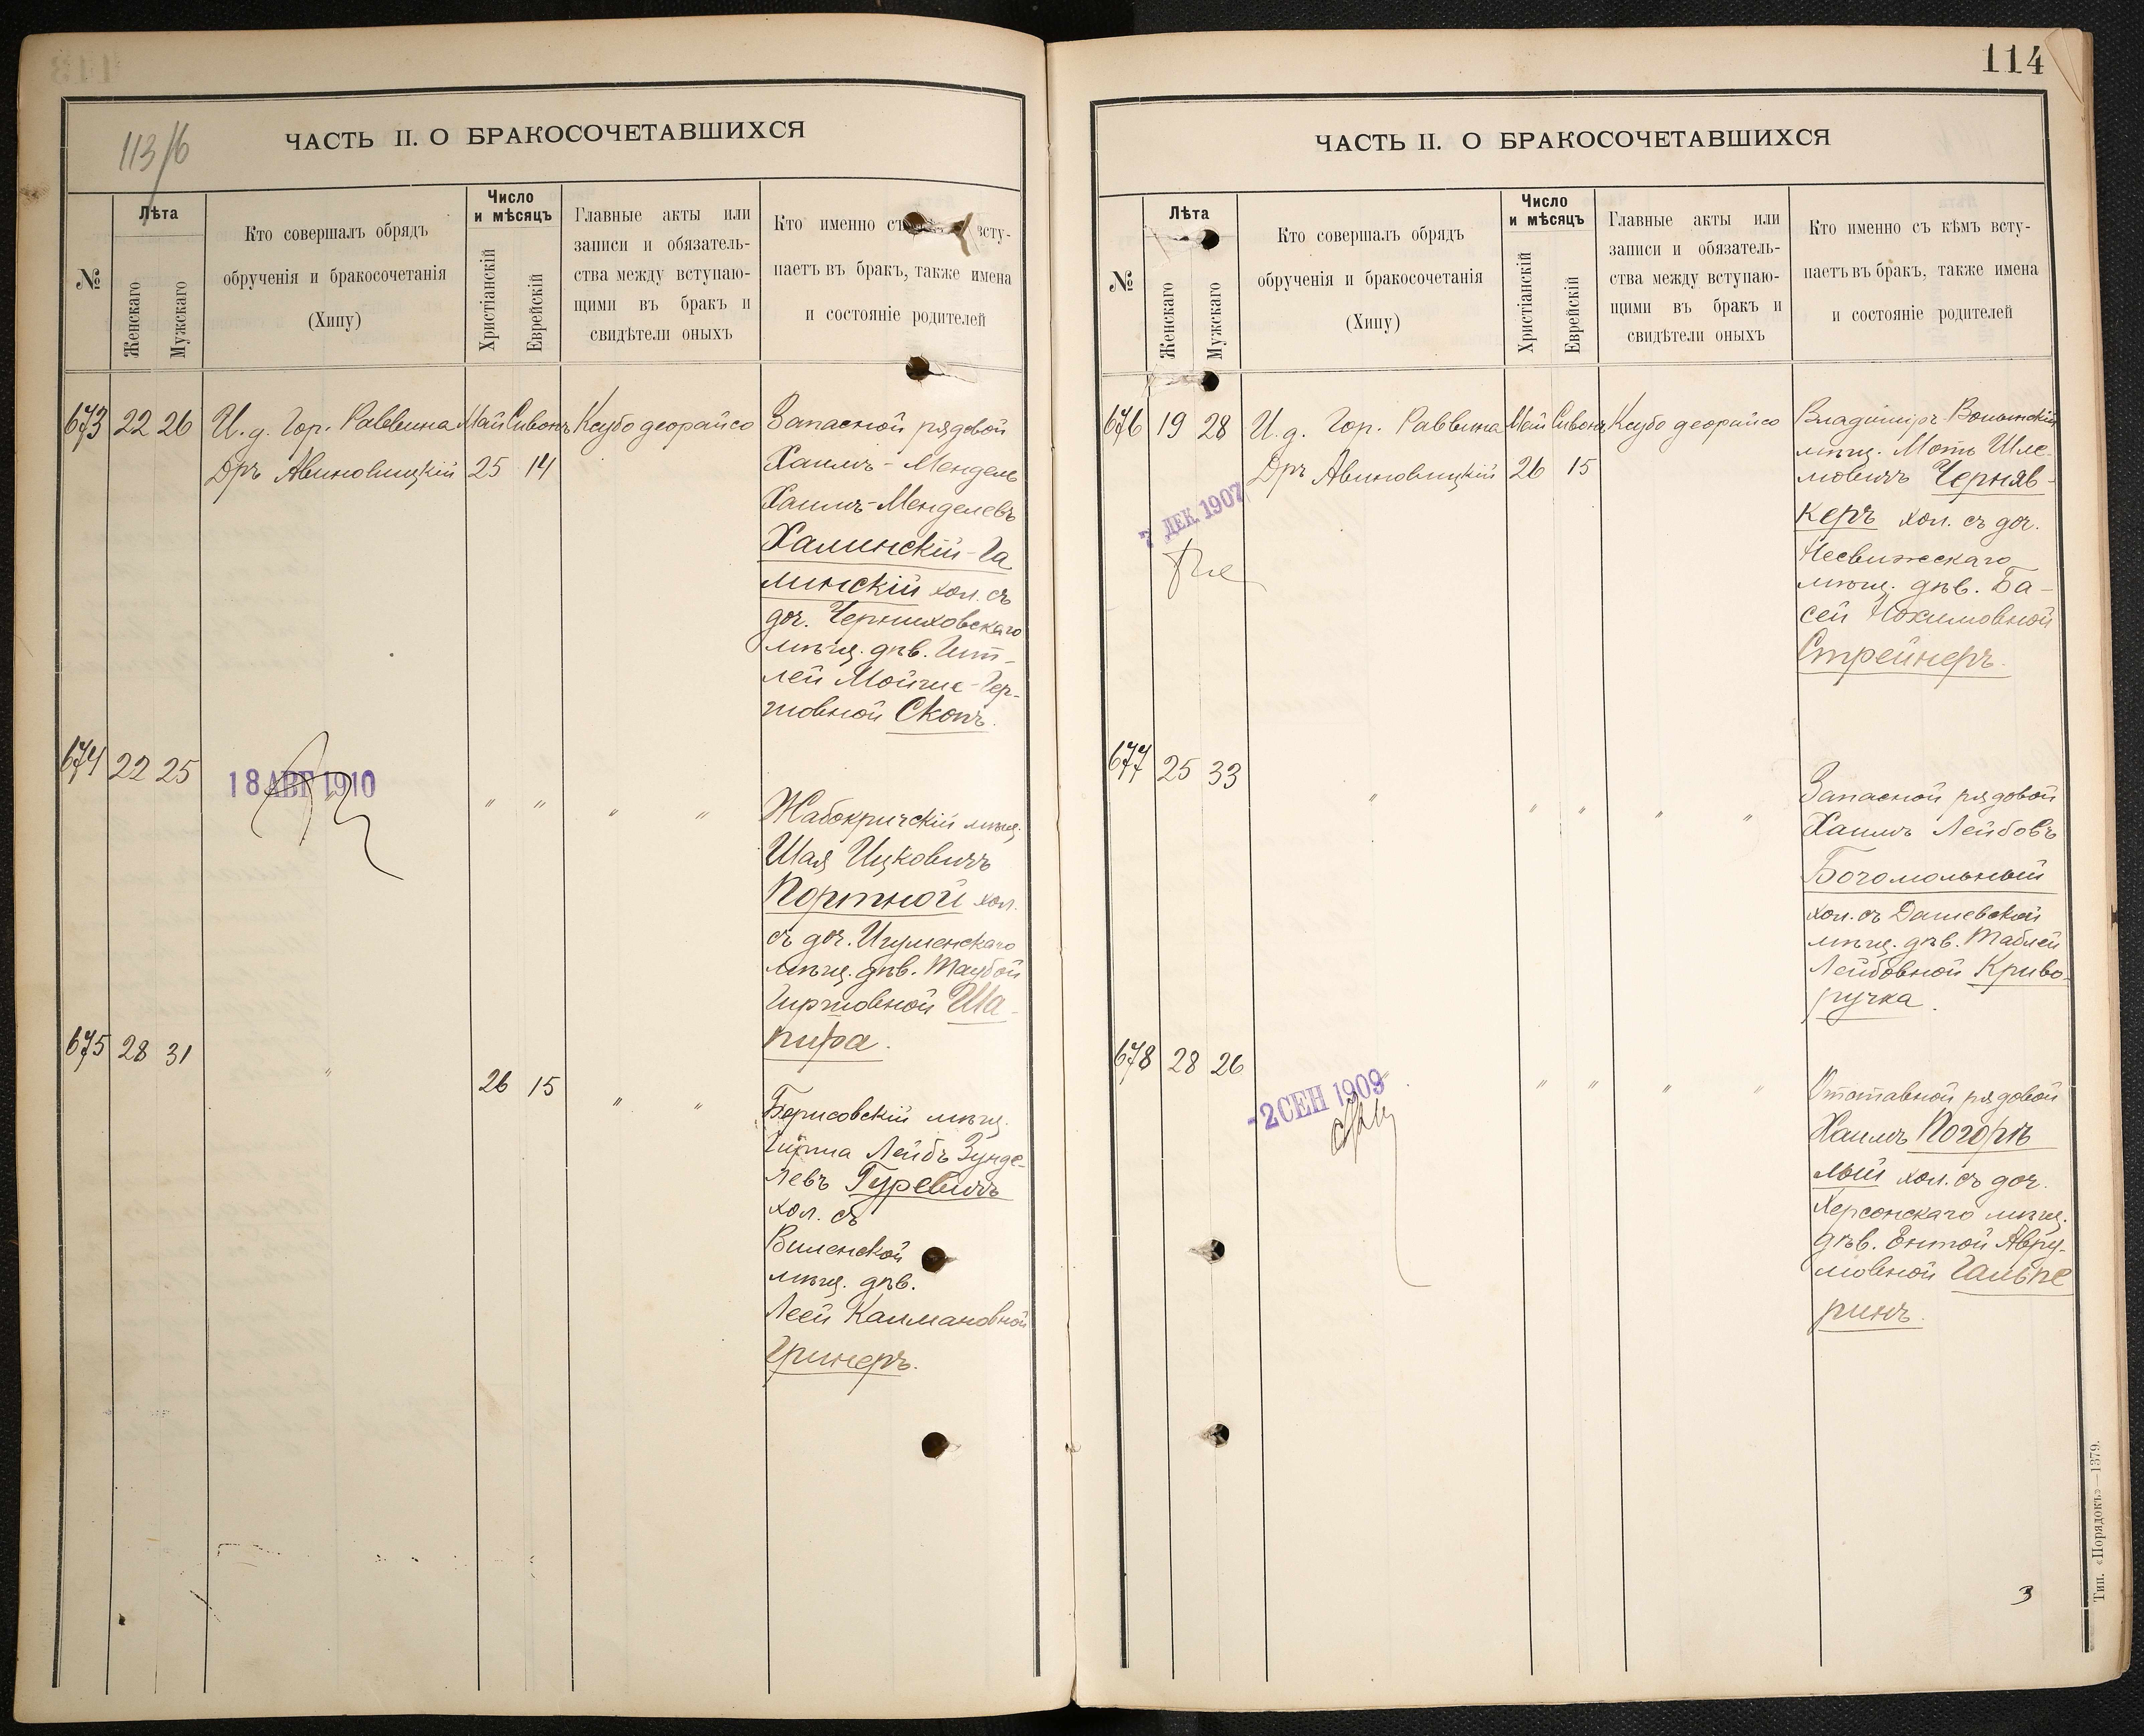 113/6
ЧАСТЬ II. О БРАКОСОЧЕТАВШИХСЯ
№
Лѣта
Женскаго
Мужскаго
Кто совершалъ обрядъ
обрученія и бракосочетанія
(Хипу)
Число
и мѣсяцъ
Христіанскій
Еврейскій
Главные акты или
записи и обязатель-
ства между вступаю-
щими въ бракъ и
свидѣтели оныхъ
Кто именно съ всту-
паетъ въ бракъ, также имена
и состояніе родителей
673 22 26 И. д. Гор. Раввина Май Сивонъ Ксубо деорайсо
Дръ Авиновицкій 25 14
Запасной рядовой
Хаимъ-Мендель
Хаимъ-Менделевъ
Халинскій-Га
линскій хол. съ
доч. Черниховскаго
мѣщ. дѣв. Гит-
лей Мойше-Гер-
шовной Скопъ.
674 22 25
18 АВГ 1910
" " " "
Жабокричскій мѣщ.
Шая Ицковичъ
Портной хол.
съ доч. Игуменскаго
мѣщ. дѣв. Таубой
Гиршовной Ша-
пира.
675 28 31 " 26 15 " "
Борисовскій мѣщ.
Гирша Лейбъ Зунде-
левъ Гуревичъ
хол. съ
Виленской
мѣщ. дѣв.
Леей Калмановной
Гринеръ.
114
ЧАСТЬ II. О БРАКОСОЧЕТАВШИХСЯ
№
Лѣта
Женскаго
Мужскаго
Кто совершалъ обрядъ
обрученія и бракосочетанія
(Хипу)
Число
и мѣсяцъ
Христіанскій
Еврейскій
Главные акты или
записи и обязатель-
ства между вступаю-
щими въ бракъ и
свидѣтели оныхъ
Кто именно съ кѣмъ всту-
паетъ въ бракъ, также имена
и состояніе родителей
676 19 28 И. д. Гор. Раввина Май Сивонъ Ксубо деорайсо
Дръ Авиновицкій 26 15
7 ДЕК 1907
Владиміръ-Волынскій
мѣщ. Мотъ Шле-
мовичъ Черняв-
керъ хол. съ доч.
Несвижескаго
мѣщ. дѣв. Ба-
сей Нохимовной
Стрейнеръ.
677 25 33 " " " " "
Запасной рядовой
Хаимъ Лейбовъ
Богомольный
хол. съ Дашевской
мѣщ. дѣв. Таблей
Лейбовной Криво-
ручка.
678 28 26
-2 СЕН 1909
" " " "
Отставной рядовой
Хаимъ Погорѣ
лый хол. съ доч.
Херсонскаго мѣщ.
дѣв. Ентой Авру-
мовной Гальпе
ринъ.
3
Тип. «Порядокъ»—1379.